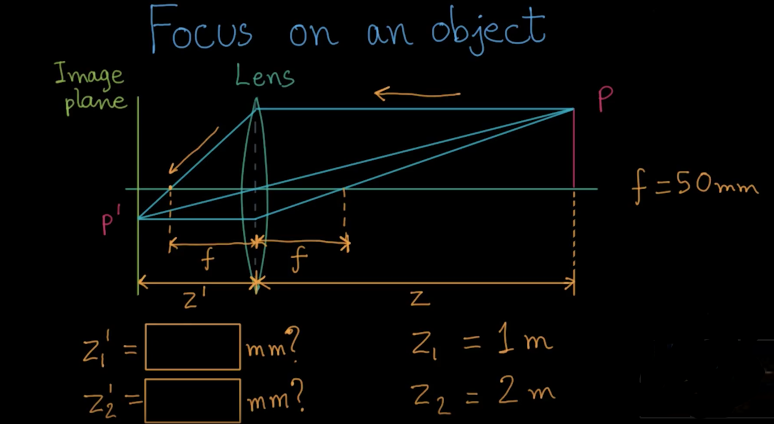 Focus on an object
Image
plane
Lens
P
f = 50mm
P'
f
f
z'
z
z₁' = mm?
z₁ = 1 m
z₂' = mm?
z₂ = 2 m